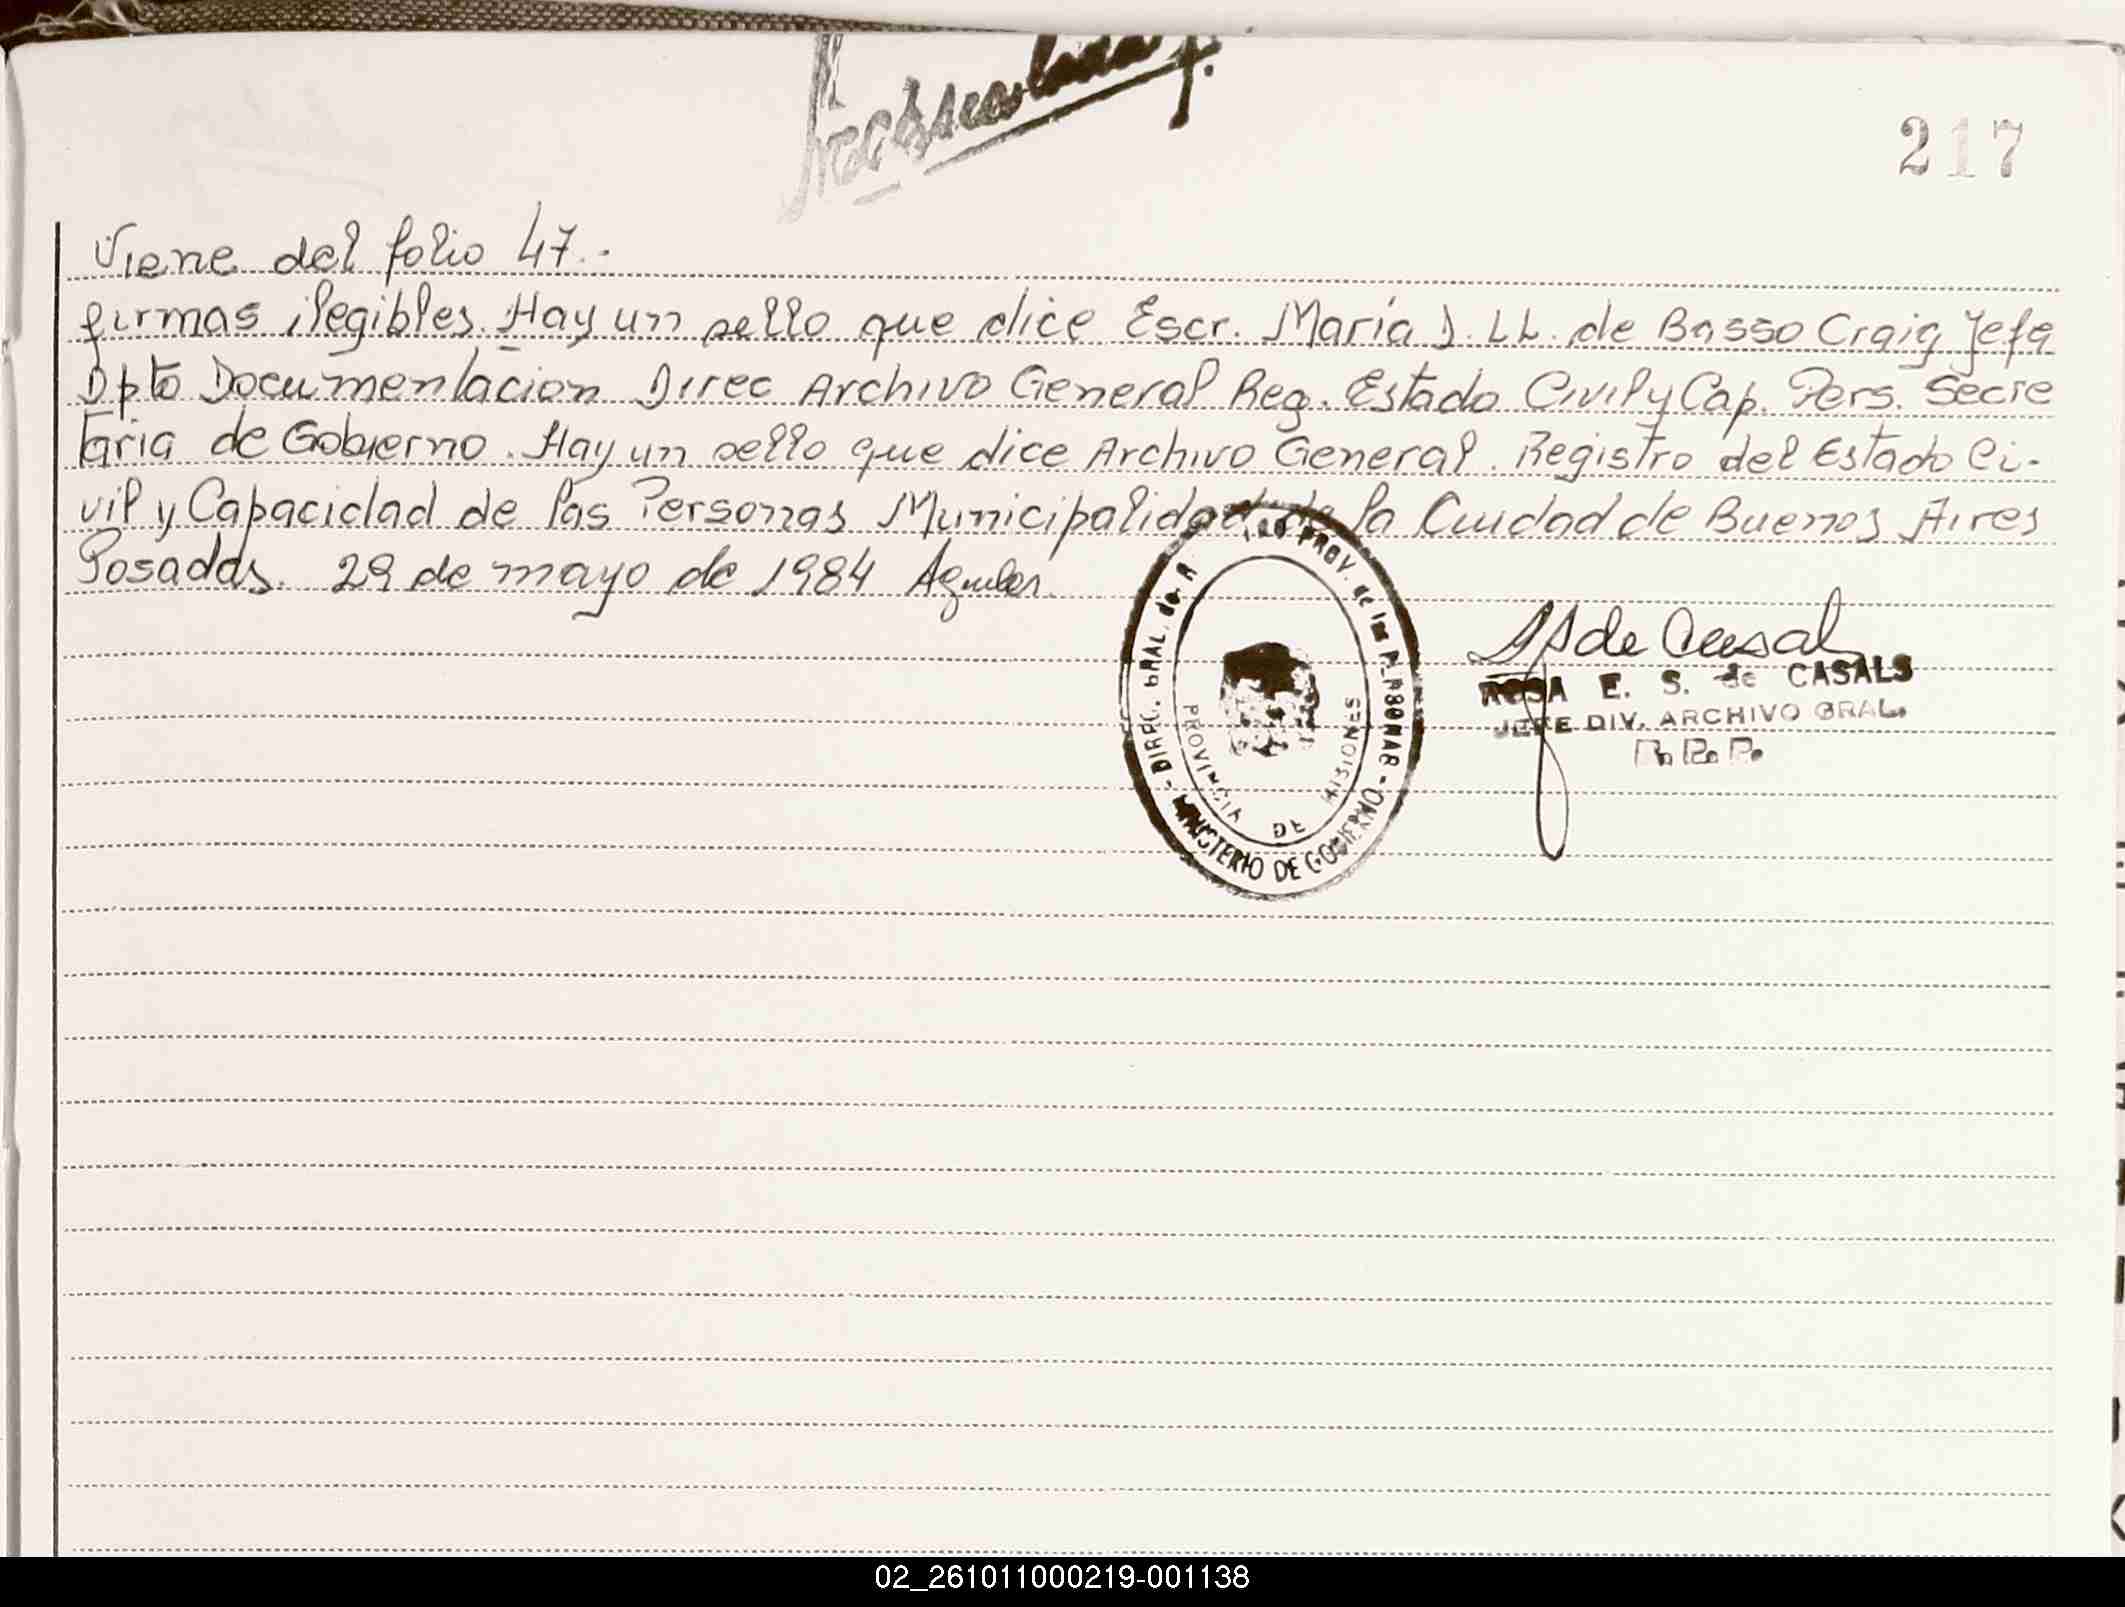 217
Viene del folio 47.-
firmas ilegibles. Hay un sello que dice Escr. María D. LL. de Basso Craig Jefe
Dpto Documentacion Direc Archivo General Reg. Estado Civil y Cap. Pers. Secre
taria de Gobierno. Hay un sello que dice Archivo General. Registro del Estado Ci-
vil y Capacidad de las Personas Municipalidad de la Ciudad de Buenos Aires
Posadas. 29 de mayo de 1984
DIREC. GRAL. de
PROV. de las PERSONAS
PROVINCIA DE MISIONES
MINISTERIO DE GOBIERNO
ROSA E. S. de CASALS
JEFE DIV. ARCHIVO GRAL.
02_261011000219-001138